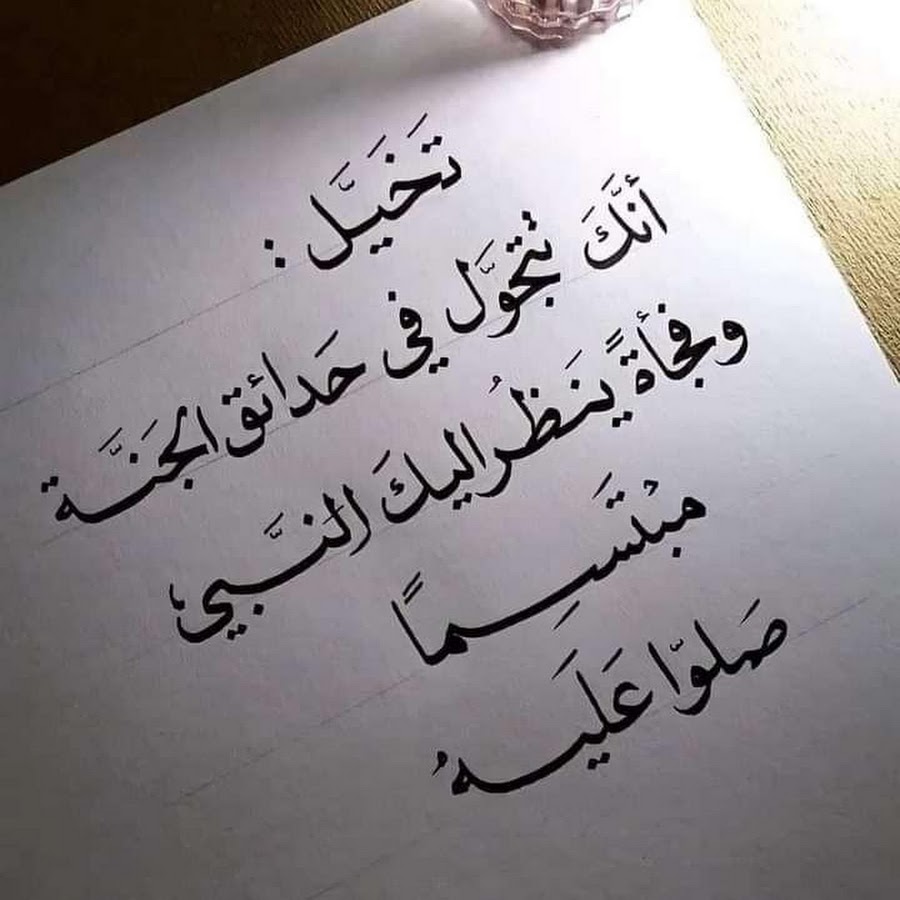 تَخَيَّل :
أنَّكَ تتجَوَّل في حَدائق الجَنَّة
وفجأةً يَنظُر اليكَ النَّبيُ
مُبْتَسِماً
صَلوّا عَلَيهُ